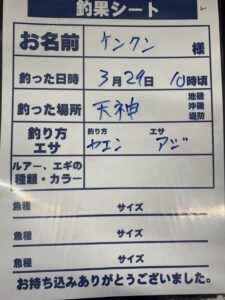 釣果シート
お名前 ケンクン 様
釣った日時 3月29日 10時頃
釣った場所 天神 地磯 沖磯 堤防
釣り方 エサ 釣り方 ヤエン エサ アジ
ルアー、エギの種類・カラー
魚種 サイズ
魚種 サイズ
魚種 サイズ
お持ち込みありがとうございました。